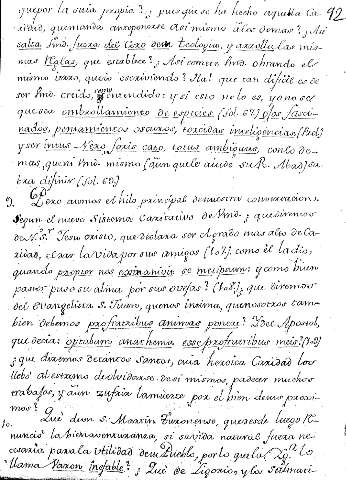 92
que por la suia propia? ¿pues que se ha hecho aquella Ca-
ridad, que manda anteponerse asi mismo á los demas? ¿Asi
salta Vmd. fuera del Coro de la Teologia, y atropella las mis-
mas Reglas, que establece? ¿Asi comete Vmd. obrando el
mismo ierro, que vio escriviendo? Ha! que tan dificil es de
ser Vmd. creido, como entendido: y si esto no lo es, yo no se
que sea embrollamiento de especies (fol. 68) ojos fasci-
nados, pensamientos obscuros, torcidas inteligencias
y ser intus Nero, foris Cato, totus ambiguus, con lo de-
mas, que ni Vmd. mismo (aun que le aiude su R. Abad) sa-
bra difinir (fol. 68)
9. Pero asumos el hilo principal de nuestra conversacion.
Segun el nuevo Sistema Caritativo de Vmd. ¿que diremos
de N.º S.r Jesu Cristo, que declara ser el grado mas alto de Ca-
ridad, el dar la vida por sus amigos como él la dió,
quando propter nos exinanivit se metipsum: y como buen
pastor puso su alma por sus ovejas? ¿que diremos
del Evangelista S. Juan, que nos insinua, que nosotros tam-
bien debemos pro fratribus animas ponere? Y del Apostol,
que decia: optabam anathema esse pro fratribus meis?
¿que diremos de tantos Santos, cuia heroica Caridad los
llebó al estremo de olvidarse de si mismos, padecer muchos
trabajos, y aun sufrir la muerte por el bien de sus proxi-
mos?
10. Qué de un S. Martin Turonense, que desde luego re-
nunció la bienaventuranza, si su vida natural fuera ne-
cesaria para la utilidad de su Pueblo, por lo que la Yg.ª lo
llama Varon inefable? ¿Que de Ligorio, y los